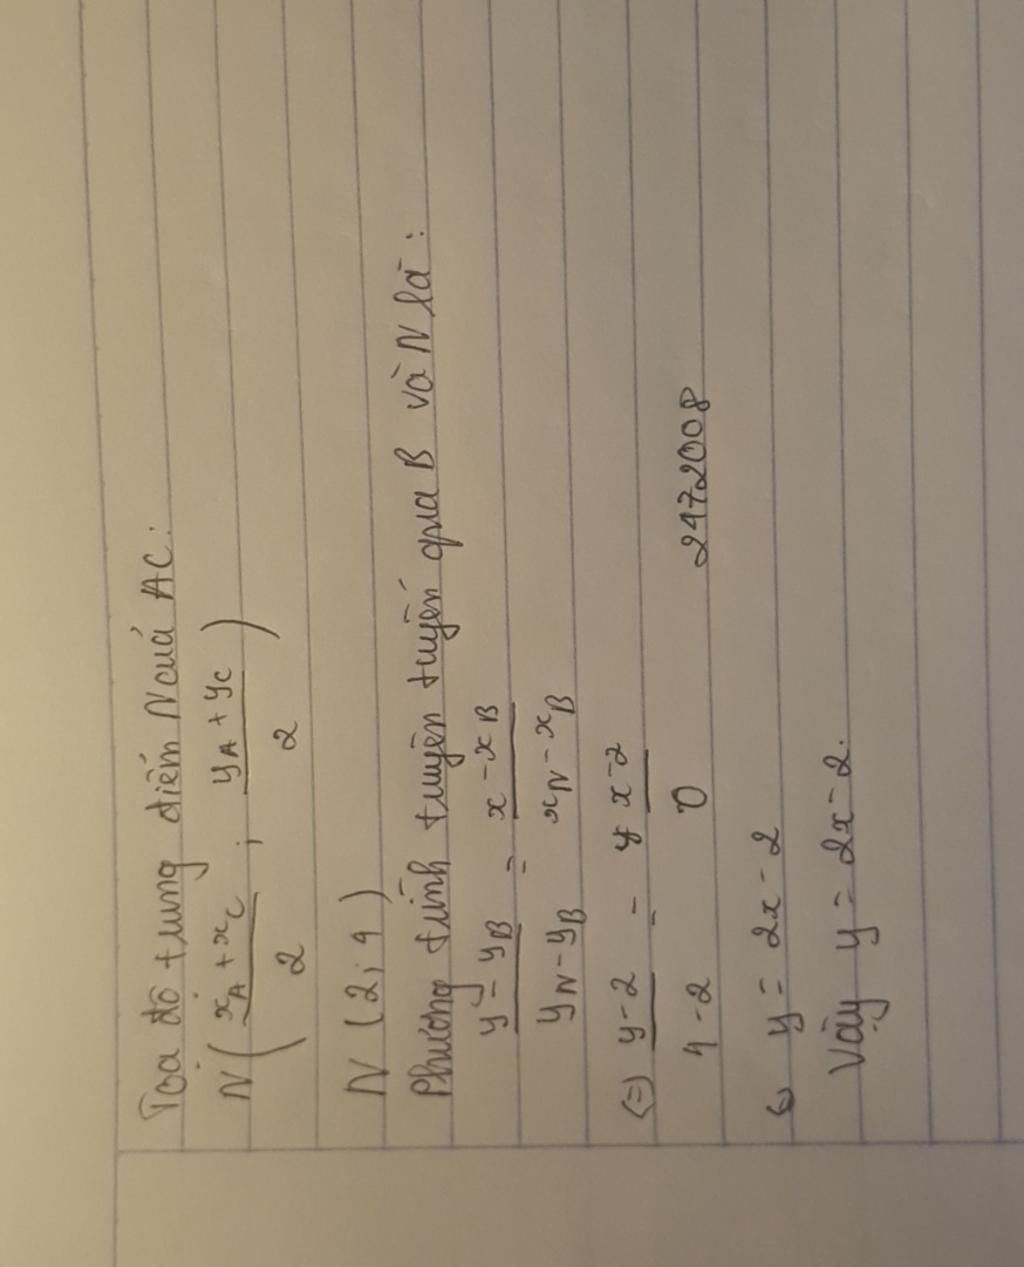 Toạ độ trung điểm N của AC:
N( (x_A + x_C)/2 ; (y_A + y_C)/2 )
N (2; 4)
Phương trình tuyến tuyến qua B và N là:
(y - y_B)/(y_N - y_B) = (x - x_B)/(x_N - x_B)
(=) (y - 2)/(4 - 2) = (x - 2)/0
2472008
y = 2x - 2
Vậy y = 2x - 2.